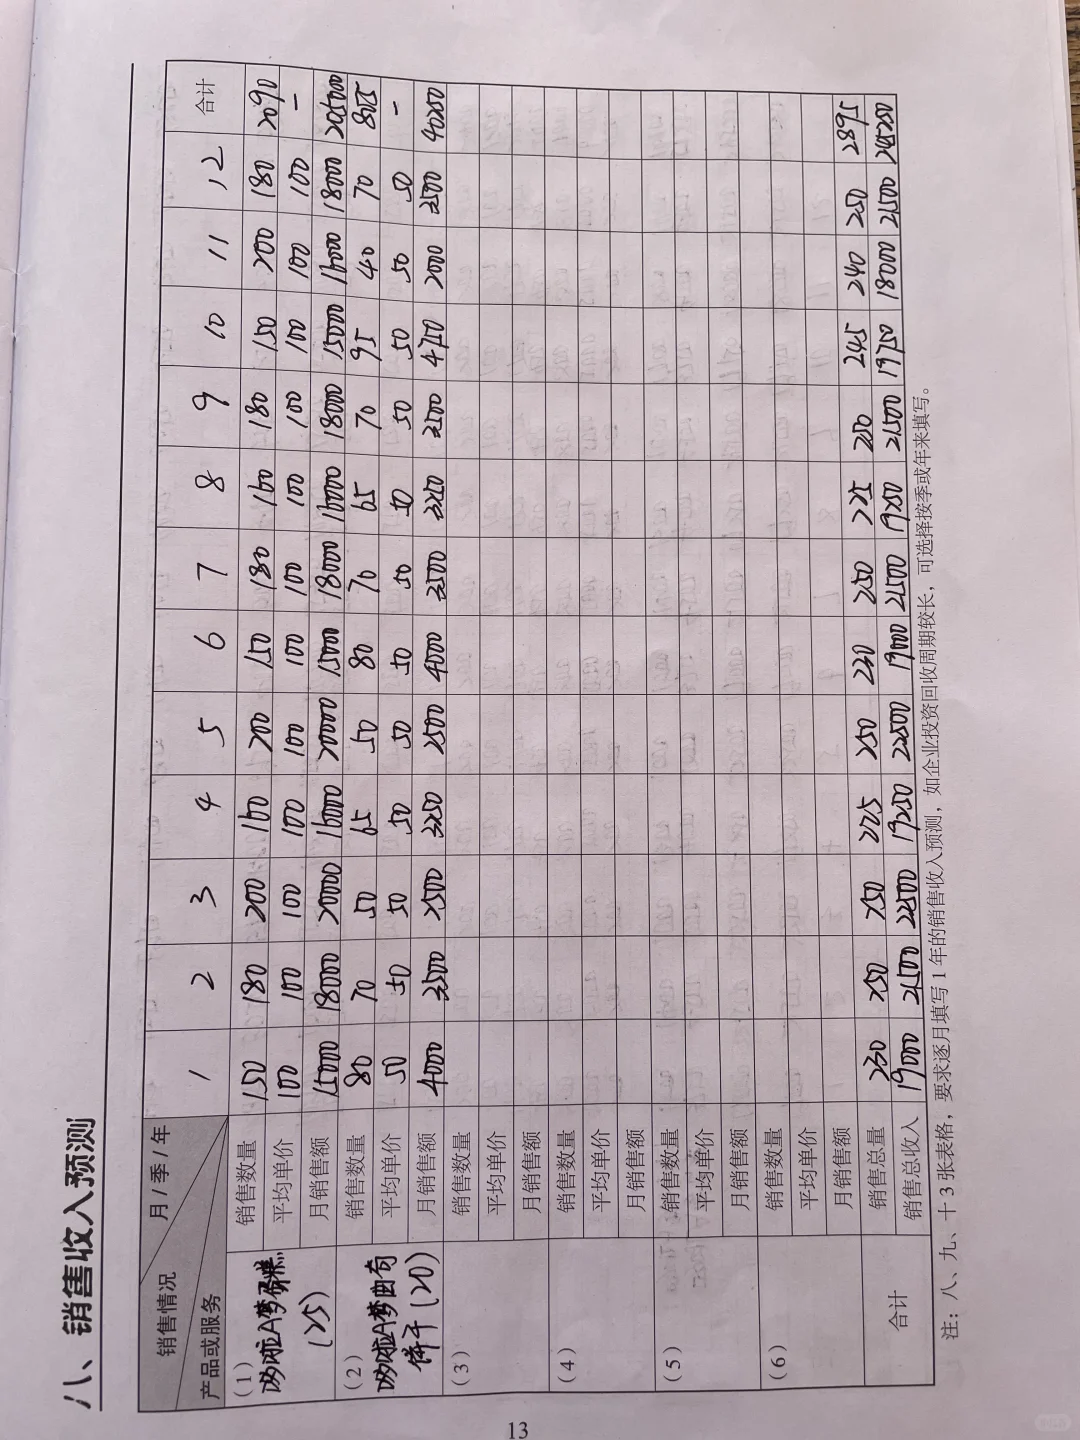 八、销售收入预测
销售情况 月/季/年 产品或服务 1 2 3 4 5 6 7 8 9 10 11 12 合计
(1) 哆啦A梦蛋糕 (25) 销售数量 150 180 200 160 200 150 180 160 180 150 200 180 2090
平均单价 100 100 100 100 100 100 100 100 100 100 100 100 —
月销售额 15000 18000 20000 16000 20000 15000 18000 16000 18000 15000 16000 18000 205000
(2) 哆啦A梦曲奇饼干 (20) 销售数量 80 70 50 65 50 80 70 65 70 95 40 70 805
平均单价 50 50 50 50 50 50 50 50 50 50 50 50 —
月销售额 4000 3500 2500 3250 2500 4000 3500 3250 3500 4750 2000 3500 40250
(3) 销售数量
平均单价
月销售额
(4) 销售数量
平均单价
月销售额
(5) 销售数量
平均单价
月销售额
(6) 销售数量
平均单价
月销售额
合计 销售总量 230 250 250 225 250 230 250 225 250 245 240 250 2895
销售总收入 19000 21500 22500 19250 22500 19000 21500 19250 21500 19750 18000 21500 245250
注：八、九、十3张表格，要求逐月填写1年的销售收入预测，如企业投资回收周期较长，可选择按季或年来填写。
13